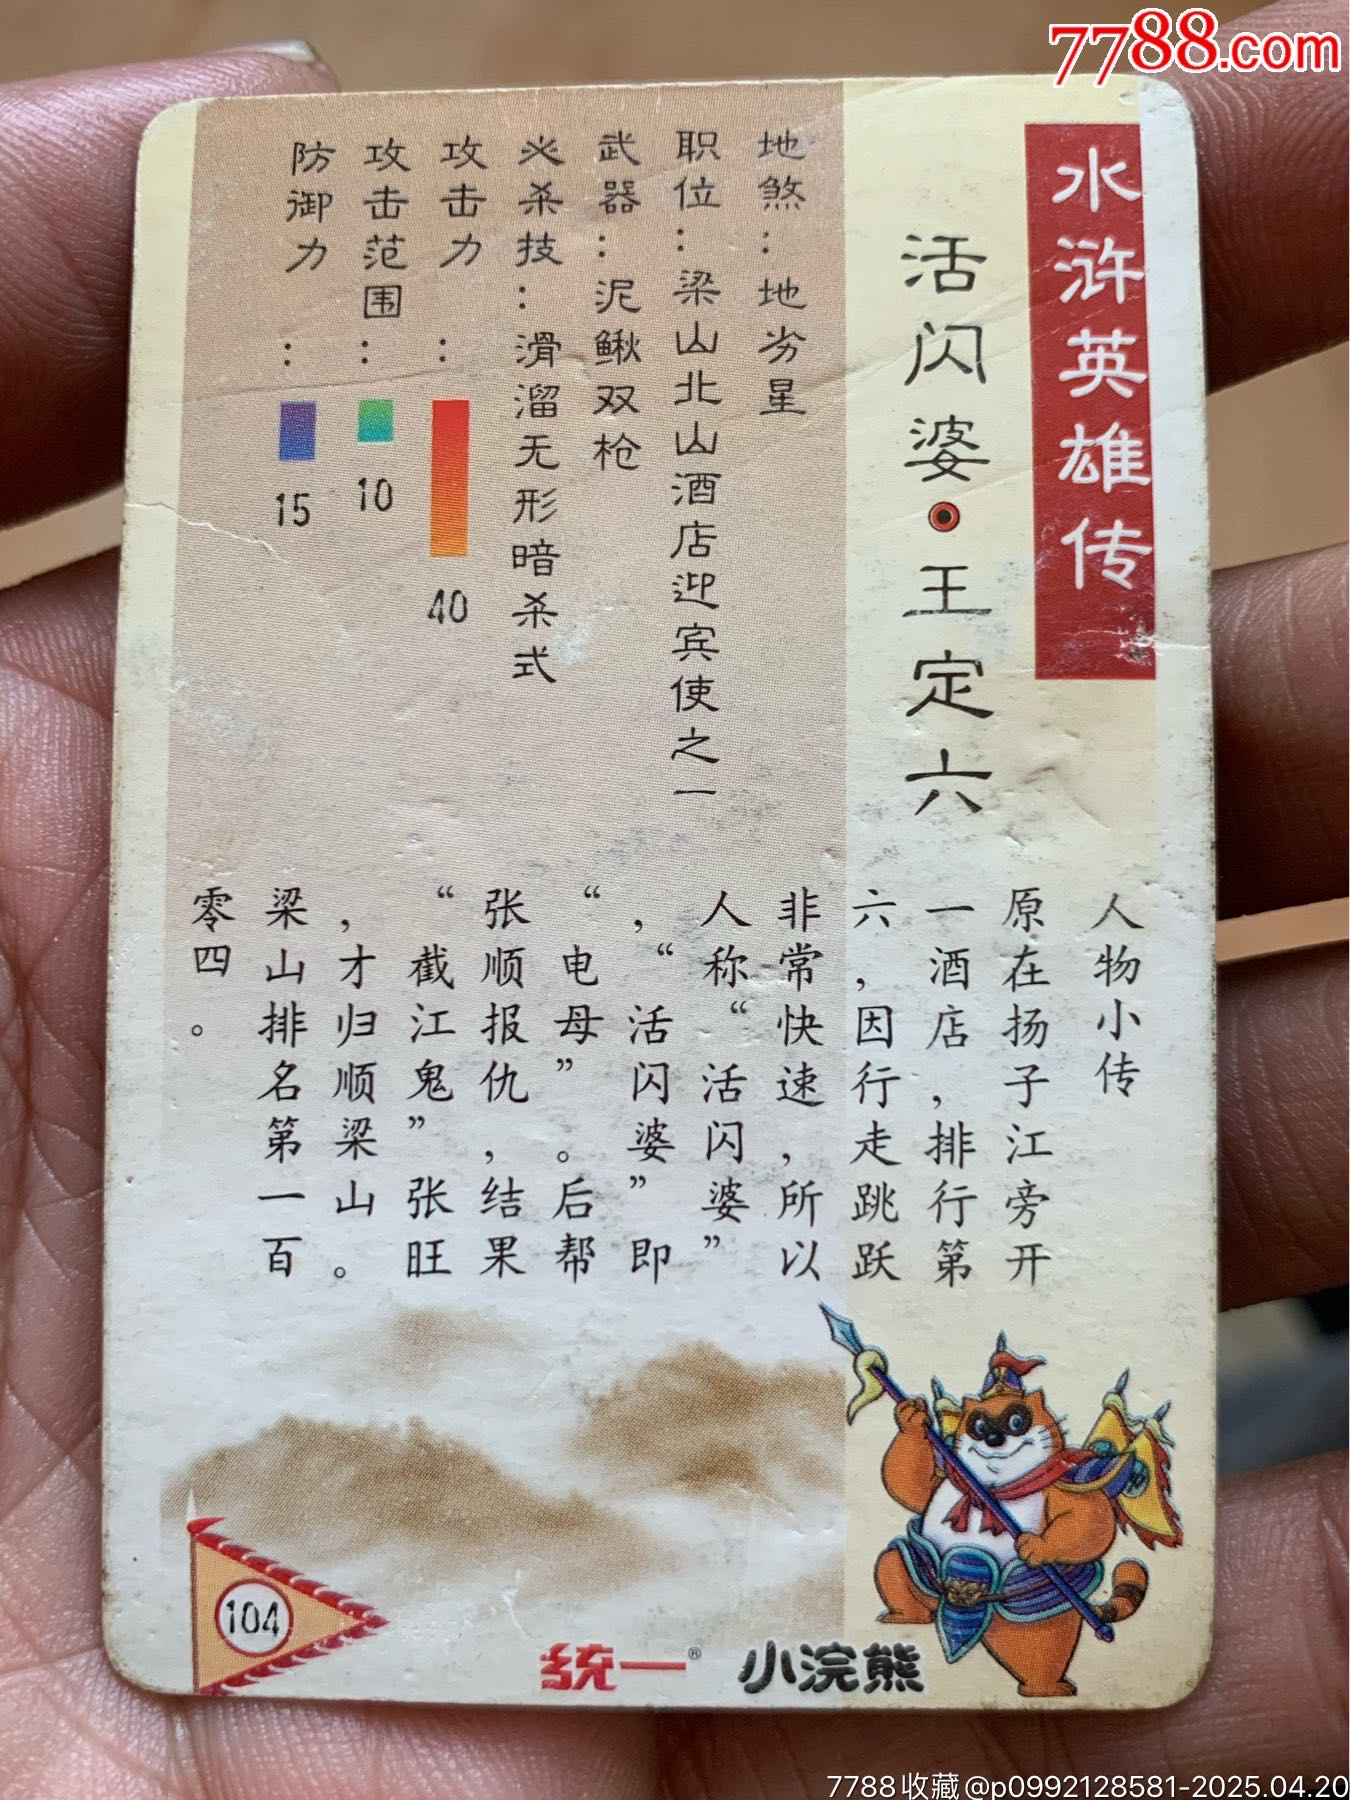 7788.com
水浒英雄传
活闪婆·王定六
地煞：地劣星
职位：梁山北山酒店迎宾使之一
武器：泥鳅双枪
必杀技：滑溜无形暗杀式
攻击力：40
攻击范围：10
防御力：15
人物小传
原在扬子江旁开
一酒店，排行第
六，因行走跳跃
非常快速，所以
人称“活闪婆”
，“活闪婆”即
“电母”。后帮
张顺报仇，结果
“截江鬼”张旺
，才归顺梁山。
梁山排名第一百
零四。
104
统一® 小浣熊
7788收藏@p0992128581-2025.04.20